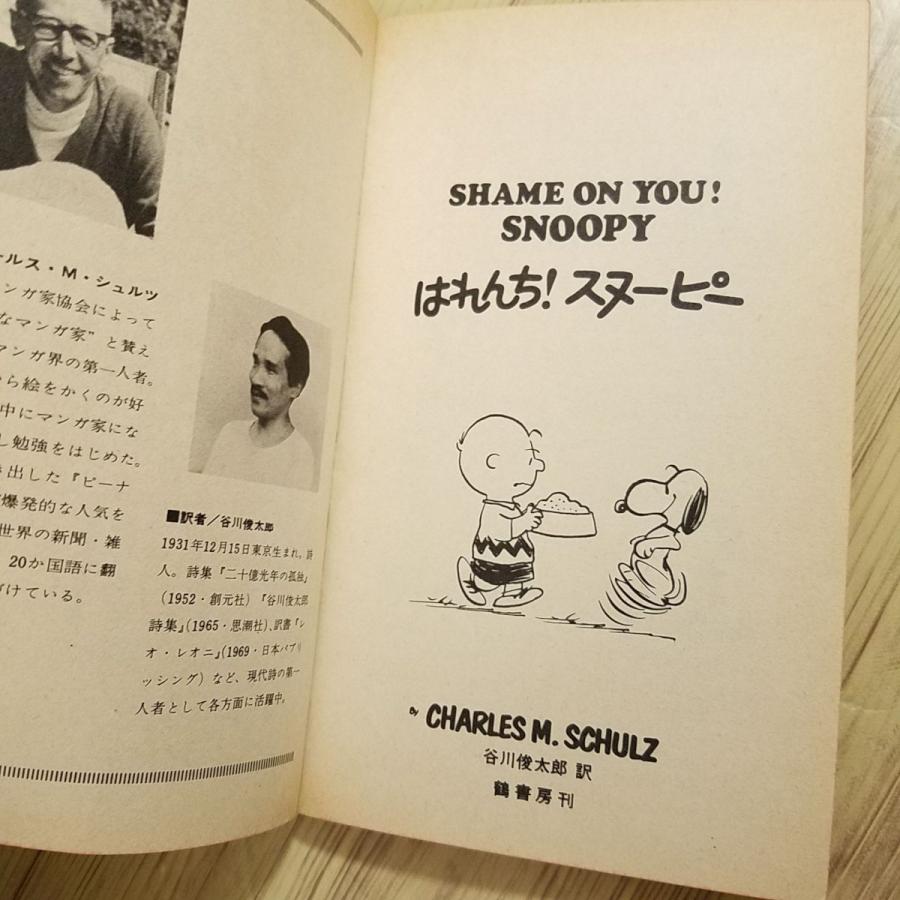 ールス・M・シュルツ
ンガ家協会によって
なマンガ家”と賛え
マンガ界の第一人者。
ら絵をかくのが好
中にマンガ家にな
し勉強をはじめた。
出した『ピーナ
爆発的な人気を
世界の新聞・雑
20か国語に翻
けている。
■訳者／谷川俊太郎
1931年12月15日東京生まれ。詩
人。詩集『二十億光年の孤独』
(1952・創元社)『谷川俊太郎
詩集』(1965・思潮社)、訳書『レ
オ・レオニ』(1969・日本パブリ
ッシング) など、現代詩の第一
人者として各方面に活躍中。
SHAME ON YOU!
SNOOPY
はれんち! スヌーピー
By CHARLES M. SCHULZ
谷川俊太郎 訳
鶴書房刊